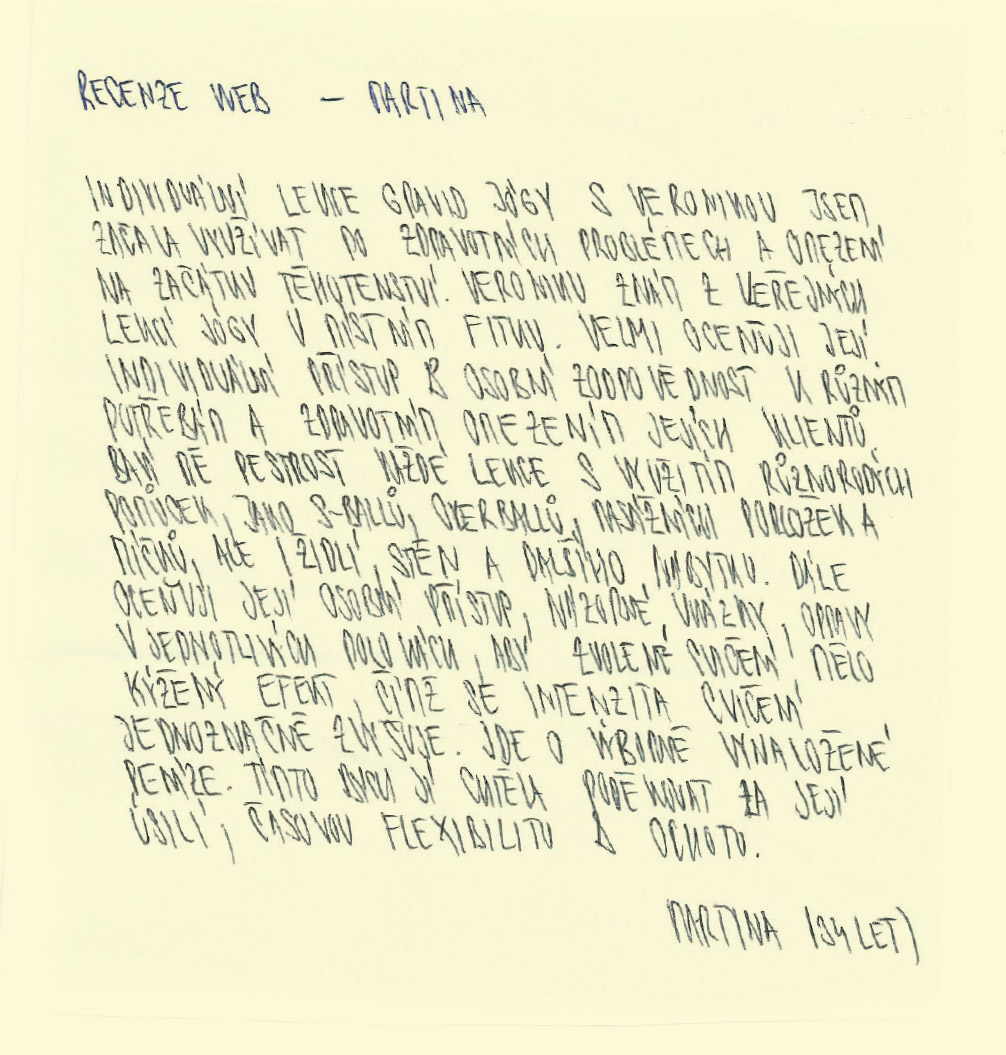 RECENZE WEB – MARTINA
INDIVIDUÁLNÍ LEKCE GRAVID JÓGY S VERONIKOU JSEM
ZAČALA VYUŽÍVAT PO ZDRAVOTNÍCH PROBLÉMECH A OMEZENÍ
NA ZAČÁTKU TĚHOTENSTVÍ. VERONIKU ZNÁM Z VEŘEJNÝCH
LEKCÍ JÓGY V MÍSTNÍM FITKU. VELMI OCEŇUJI JEJÍ
INDIVIDUÁLNÍ PŘÍSTUP A OSOBNÍ ZODPOVĚDNOST K RŮZNÝM
POTŘEBÁM A ZDRAVOTNÍM OMEZENÍM JEJÍCH KLIENTŮ.
BAVÍ MĚ PESTROST KAŽDÉ LEKCE S VYUŽITÍM RŮZNORODÝCH
POMŮCEK, JAKO S-BALLŮ, OVERBALLŮ, MASÁŽNÍCH PODLOŽEK A
MÍČKŮ, ALE I ŽIDLÍ, STĚN A DALŠÍHO NÁBYTKU. DÁLE
OCEŇUJI JEJÍ OSOBNÍ PŘÍSTUP, NÁZORNÉ UKÁZKY, OPRAVY
V JEDNOTLIVÝCH POLOHÁCH, ABY ZVOLENÉ CVIČENÍ MĚLO
KÝŽENÝ EFEKT, ČÍMŽ SE INTENZITA CVIČENÍ
JEDNOZNAČNĚ ZVYŠUJE. JDE O VÝBORNĚ VYNALOŽENÉ
PENÍZE. TÍMTO BYCH JÍ CHTĚLA PODĚKOVAT ZA JEJÍ
ÚSILÍ, ČASOVOU FLEXIBILITU A OCHOTU.
MARTINA (34 LET)